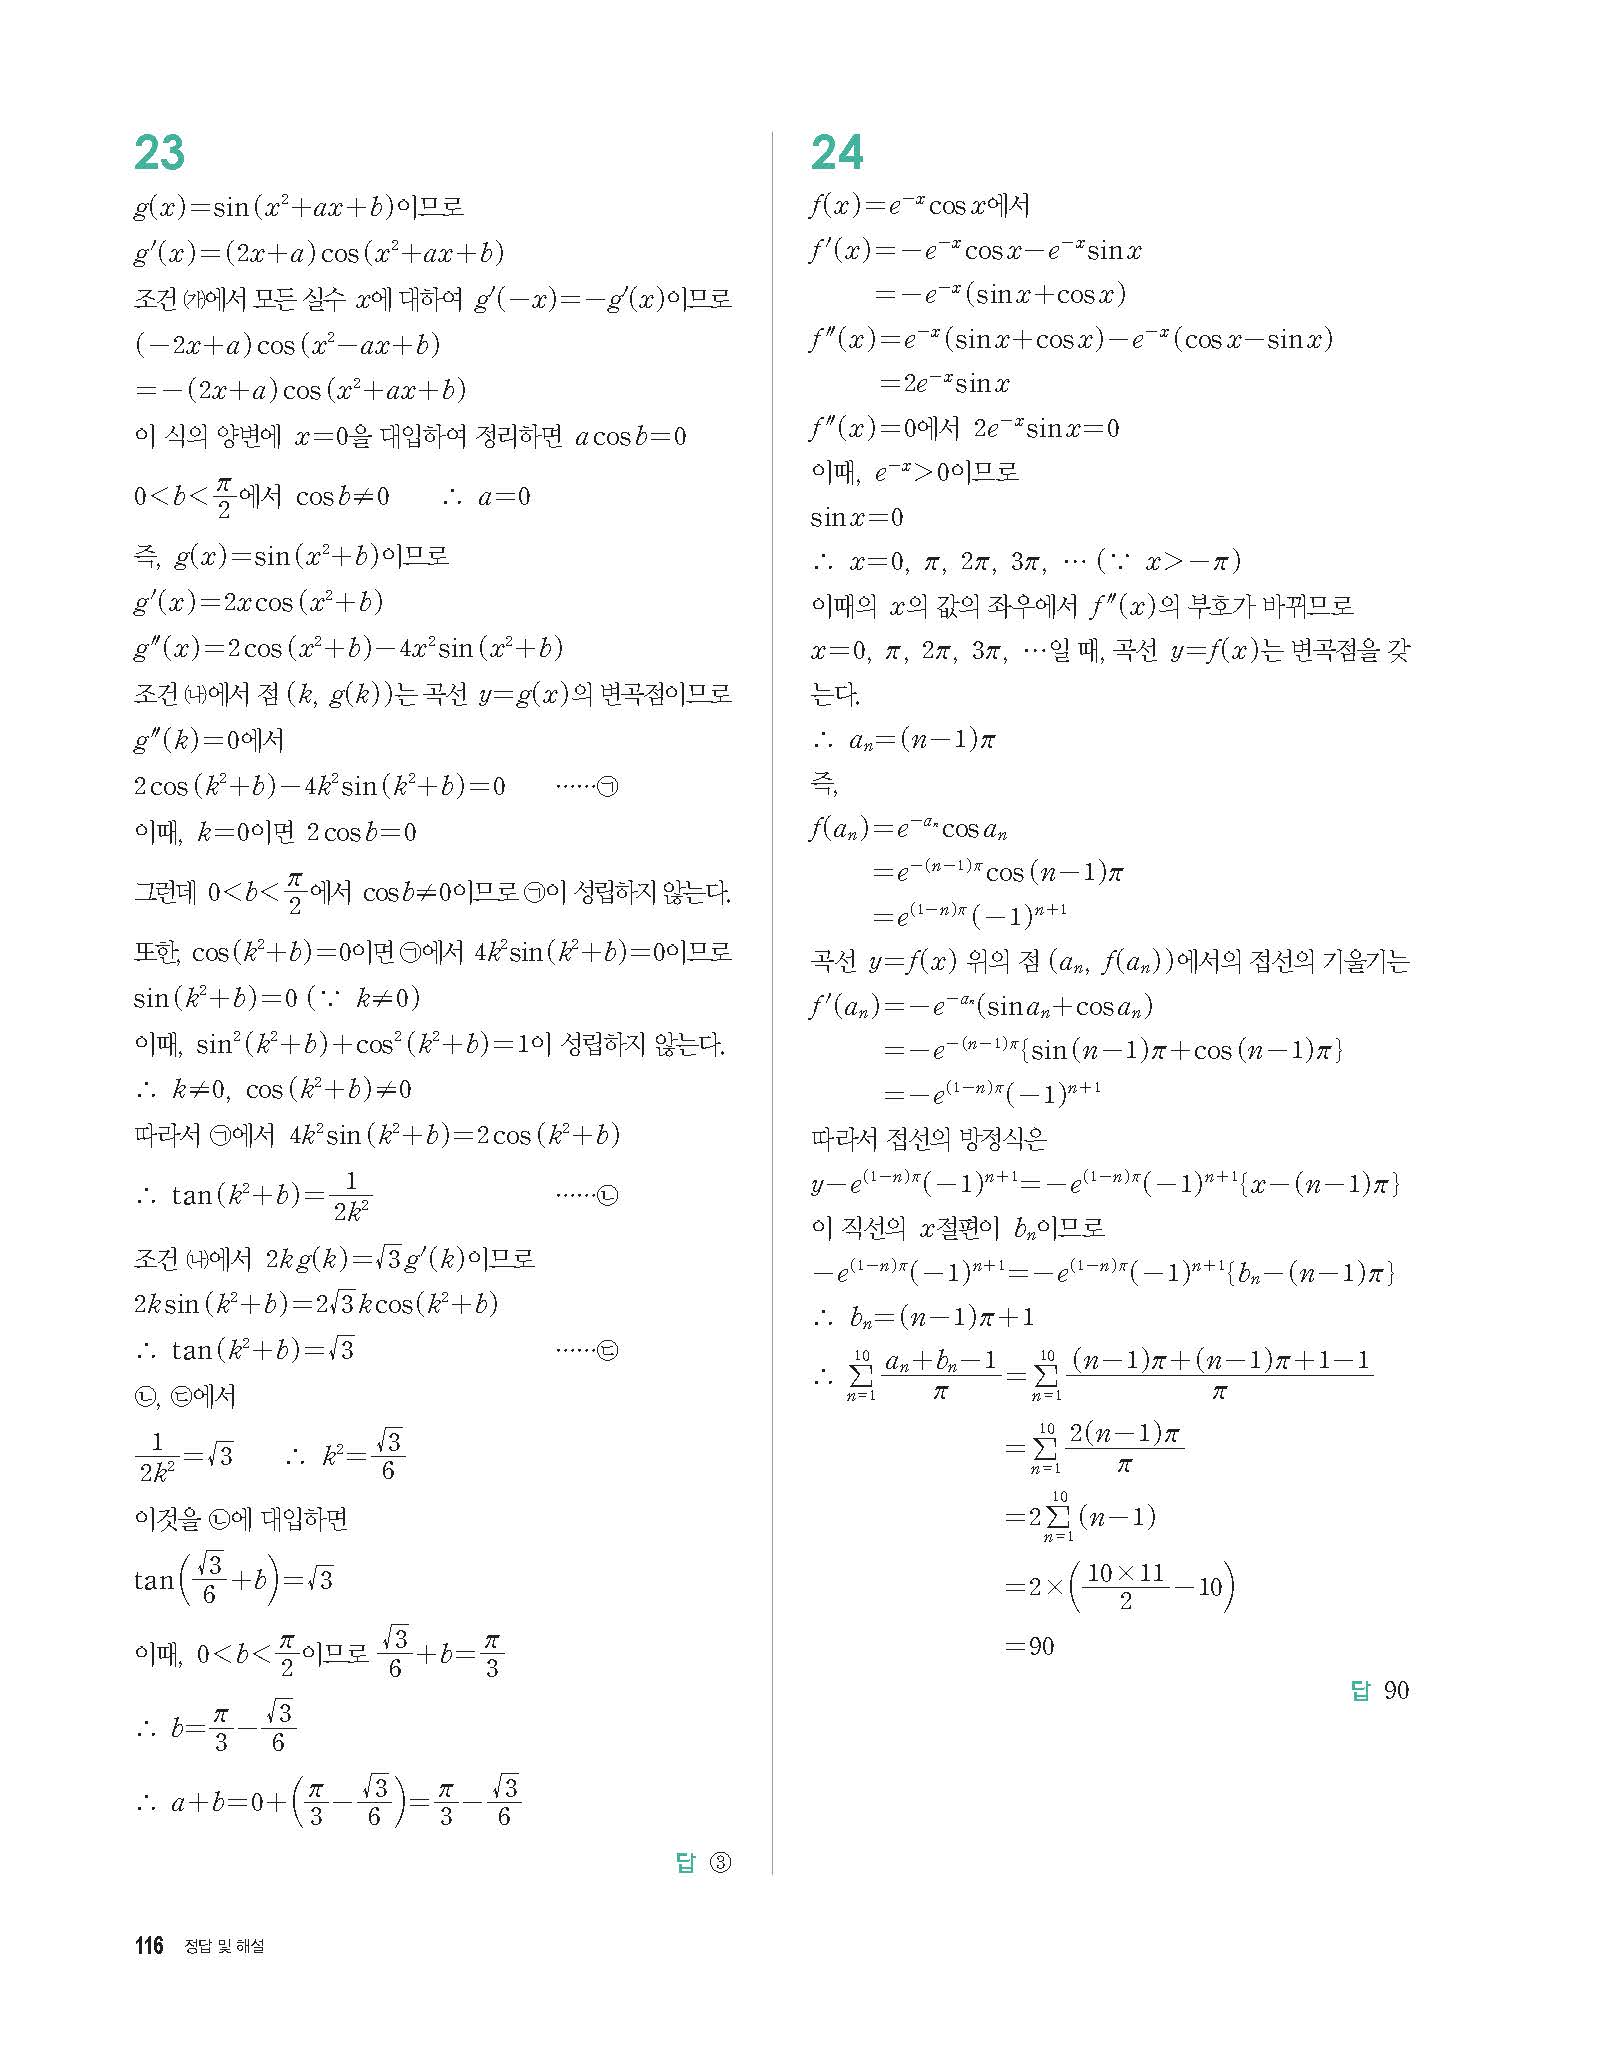 23
g(x)=sin(x²+ax+b)이므로
g′(x)=(2x+a)cos(x²+ax+b)
조건 ㈎에서 모든 실수 x에 대하여 g′(-x)=-g′(x)이므로
(-2x+a)cos(x²-ax+b)
=-(2x+a)cos(x²+ax+b)
이 식의 양변에 x=0을 대입하여 정리하면 a cos b=0
0<b<π/2에서 cos b≠0 ∴ a=0
즉, g(x)=sin(x²+b)이므로
g′(x)=2x cos(x²+b)
g″(x)=2cos(x²+b)-4x² sin(x²+b)
조건 ㈏에서 점 (k, g(k))는 곡선 y=g(x)의 변곡점이므로
g″(k)=0에서
2cos(k²+b)-4k² sin(k²+b)=0 ……㉠
이때, k=0이면 2cos b=0
그런데 0<b<π/2에서 cos b≠0이므로 ㉠이 성립하지 않는다.
또한, cos(k²+b)=0이면 ㉠에서 4k² sin(k²+b)=0이므로
sin(k²+b)=0 (∵ k≠0)
이때, sin²(k²+b)+cos²(k²+b)=1이 성립하지 않는다.
∴ k≠0, cos(k²+b)≠0
따라서 ㉠에서 4k² sin(k²+b)=2cos(k²+b)
∴ tan(k²+b)=1/2k² ……㉡
조건 ㈏에서 2kg(k)=√3g′(k)이므로
2k sin(k²+b)=2√3k cos(k²+b)
∴ tan(k²+b)=√3 ……㉢
㉡, ㉢에서
1/2k²=√3 ∴ k²=√3/6
이것을 ㉡에 대입하면
tan(√3/6+b)=√3
이때, 0<b<π/2이므로 √3/6+b=π/3
∴ b=π/3-√3/6
∴ a+b=0+(π/3-√3/6)=π/3-√3/6
답 ③
24
f(x)=e⁻ˣ cos x에서
f′(x)=-e⁻ˣ cos x-e⁻ˣ sin x
=-e⁻ˣ(sin x+cos x)
f″(x)=e⁻ˣ(sin x+cos x)-e⁻ˣ(cos x-sin x)
=2e⁻ˣ sin x
f″(x)=0에서 2e⁻ˣ sin x=0
이때, e⁻ˣ>0이므로
sin x=0
∴ x=0, π, 2π, 3π, … (∵ x>-π)
이때의 x의 값의 좌우에서 f″(x)의 부호가 바뀌므로
x=0, π, 2π, 3π, …일 때, 곡선 y=f(x)는 변곡점을 갖
는다.
∴ aₙ=(n-1)π
즉,
f(aₙ)=e^(-aₙ) cos aₙ
=e^(-(n-1)π) cos(n-1)π
=e^((1-n)π)(-1)^(n+1)
곡선 y=f(x) 위의 점 (aₙ, f(aₙ))에서의 접선의 기울기는
f′(aₙ)=-e^(-aₙ)(sin aₙ+cos aₙ)
=-e^(-(n-1)π){sin(n-1)π+cos(n-1)π}
=-e^((1-n)π)(-1)^(n+1)
따라서 접선의 방정식은
y-e^((1-n)π)(-1)^(n+1)=-e^((1-n)π)(-1)^(n+1){x-(n-1)π}
이 직선의 x절편이 bₙ이므로
-e^((1-n)π)(-1)^(n+1)=-e^((1-n)π)(-1)^(n+1){bₙ-(n-1)π}
∴ bₙ=(n-1)π+1
∴ ∑_(n=1)^10 (aₙ+bₙ-1)/π=∑_(n=1)^10 ((n-1)π+(n-1)π+1-1)/π
=∑_(n=1)^10 2(n-1)π/π
=2∑_(n=1)^10 (n-1)
=2×(10×11/2-10)
=90
답 90
116 정답 및 해설